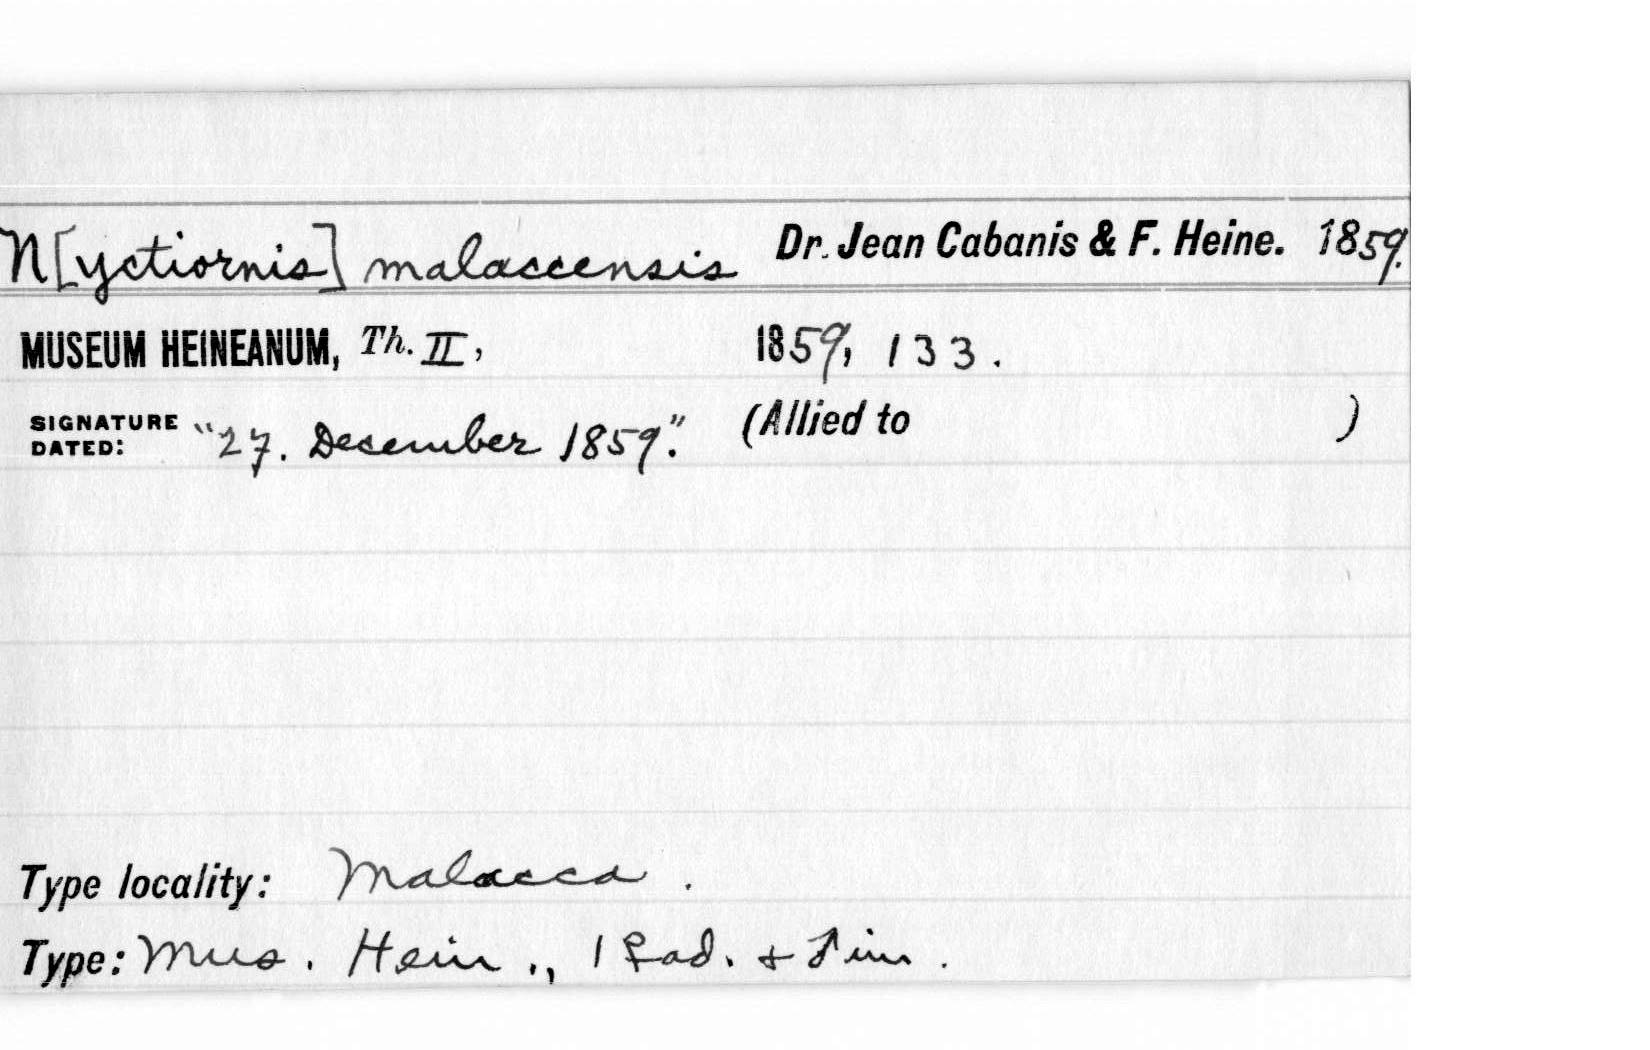 N[yctiornis] malaccensis Dr. Jean Cabanis & F. Heine. 1859.
MUSEUM HEINEANUM, Th. II, 1859, 133.
SIGNATURE DATED: "27. December 1859". (Allied to )
Type locality: Malacca.
Type: Mus. Hein., 1 ♀ad. + Jun.